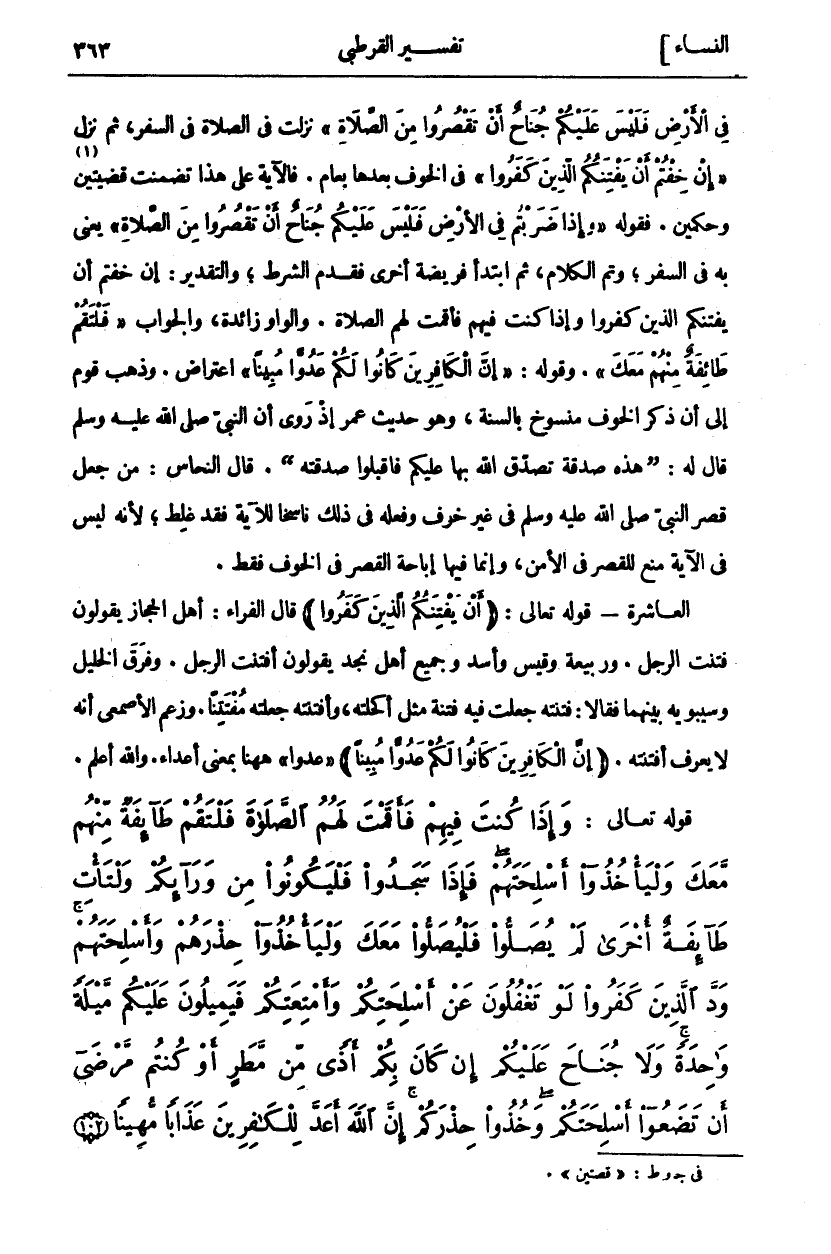 النساء ] تفسير القرطبي ٣٦٣
فِي الْأَرْضِ فَلَيْسَ عَلَيْكُمْ جُنَاحٌ أَنْ تَقْصُرُوا مِنَ الصَّلَاةِ » نزلت فى الصلاة فى السفر، ثم نزل
« إِنْ خِفْتُمْ أَنْ يَفْتِنَكُمُ الَّذِينَ كَفَرُوا » فى الخوف بعدها بعام . فالآية على هذا تضمنت قضيتين (١)
وحكمين . فقوله « وإذا ضَرَبْتُم فِي الأرْضِ فَلَيْسَ عَلَيْكُم جُنَاحٌ أَنْ تَقْصُرُوا مِنَ الصَّلَاةِ » يعنى
به فى السفر ؛ وتم الكلام، ثم ابتدأ فريضة أخرى فقدم الشرط ؛ والتقدير : إن خفتم أن
يفتنكم الذين كفروا وإذا كنت فيهم فأقمت لهم الصلاة . والواو زائدة، والجواب « فَلْتَقُمْ
طَائِفَةٌ مِنْهُمْ مَعَكَ » . وقوله : « إنَّ الْكَافِرِينَ كَانُوا لَكُمْ عَدُوًّا مُبِينًا » اعتراض . وذهب قوم
إلى أن ذكر الخوف منسوخ بالسنة ، وهو حديث عمر إذْ رَوى أن النبيّ صلى الله عليه وسلم
قال له : ”هذه صدقة تصدّق الله بها عليكم فاقبلوا صدقته“ . قال النحاس : من جعل
قصر النبيّ صلى الله عليه وسلم فى غير خوف وفعله فى ذلك ناسخا للآية فقد غلِط ؛ لأنه ليس
فى الآية منع للقصر فى الأمن، وإنما فيها إباحة القصر فى الخوف فقط .
العاشرة – قوله تعالى : ﴿ أَنْ يَفْتِنَكُمُ الَّذِينَ كَفَرُوا ﴾ قال الفراء : أهل الحجاز يقولون
فتنت الرجل . وربيعة وقيس وأسد وجميع أهل نجد يقولون أفتنت الرجل . وفرَقَ الخليل
وسيبويه بينهما فقالا : فتنته جعلت فيه فتنة مثل أكحلته، وأفتنته جعلته مُفْتَتِنًا . وزعم الأصمعى أنه
لا يعرف أفتنته . ﴿ إِنَّ الْكَافِرِينَ كَانُوا لَكُمْ عَدُوًّا مُبِينًا ﴾ « عدوا » ههنا بمعنى أعداء. والله أعلم .
قوله تعالى : وَإِذَا كُنتَ فِيهِمْ فَأَقَمْتَ لَهُمُ ٱلصَّلَوٰةَ فَلْتَقُمْ طَآئِفَةٌ مِّنْهُم
مَّعَكَ وَلْيَأْخُذُوٓا۟ أَسْلِحَتَهُمْ ۖ فَإِذَا سَجَدُوا۟ فَلْيَكُونُوا۟ مِن وَرَآئِكُمْ وَلْتَأْتِ
طَآئِفَةٌ أُخْرَىٰ لَمْ يُصَلُّوا۟ فَلْيُصَلُّوا۟ مَعَكَ وَلْيَأْخُذُوا۟ حِذْرَهُمْ وَأَسْلِحَتَهُمْ ۗ
وَدَّ ٱلَّذِينَ كَفَرُوا۟ لَوْ تَغْفُلُونَ عَنْ أَسْلِحَتِكُمْ وَأَمْتِعَتِكُمْ فَيَمِيلُونَ عَلَيْكُم مَّيْلَةً
وَٰحِدَةً ۚ وَلَا جُنَاحَ عَلَيْكُمْ إِن كَانَ بِكُمْ أَذًى مِّن مَّطَرٍ أَوْ كُنتُم مَّرْضَىٰٓ
أَن تَضَعُوٓا۟ أَسْلِحَتَكُمْ ۖ وَخُذُوا۟ حِذْرَكُمْ ۗ إِنَّ ٱللَّهَ أَعَدَّ لِلْكَـٰفِرِينَ عَذَابًا مُّهِينًا ١٠٢
فى جـ وط : « قصتين » .